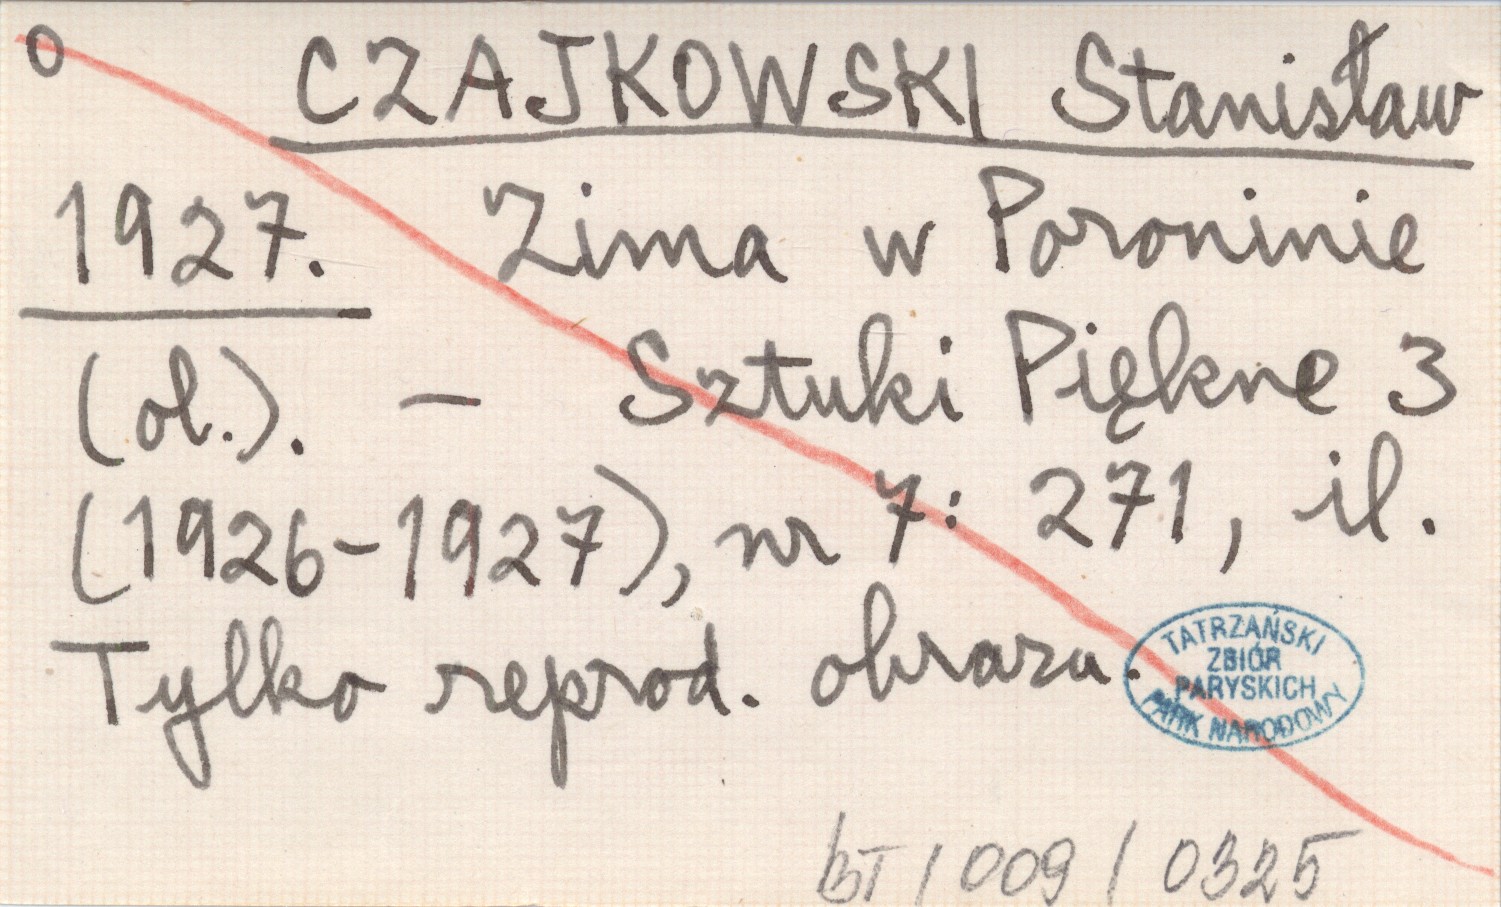 o CZAJKOWSKI Stanisław
1927. Zima w Poroninie
(ol.). – Sztuki Piękne 3
(1926-1927), nr 7: 271, il.
Tylko reprod. obrazu.
TATRZAŃSKI
ZBIÓR
PARYSKICH
PARK NARODOWY
BT / 009 / 0325